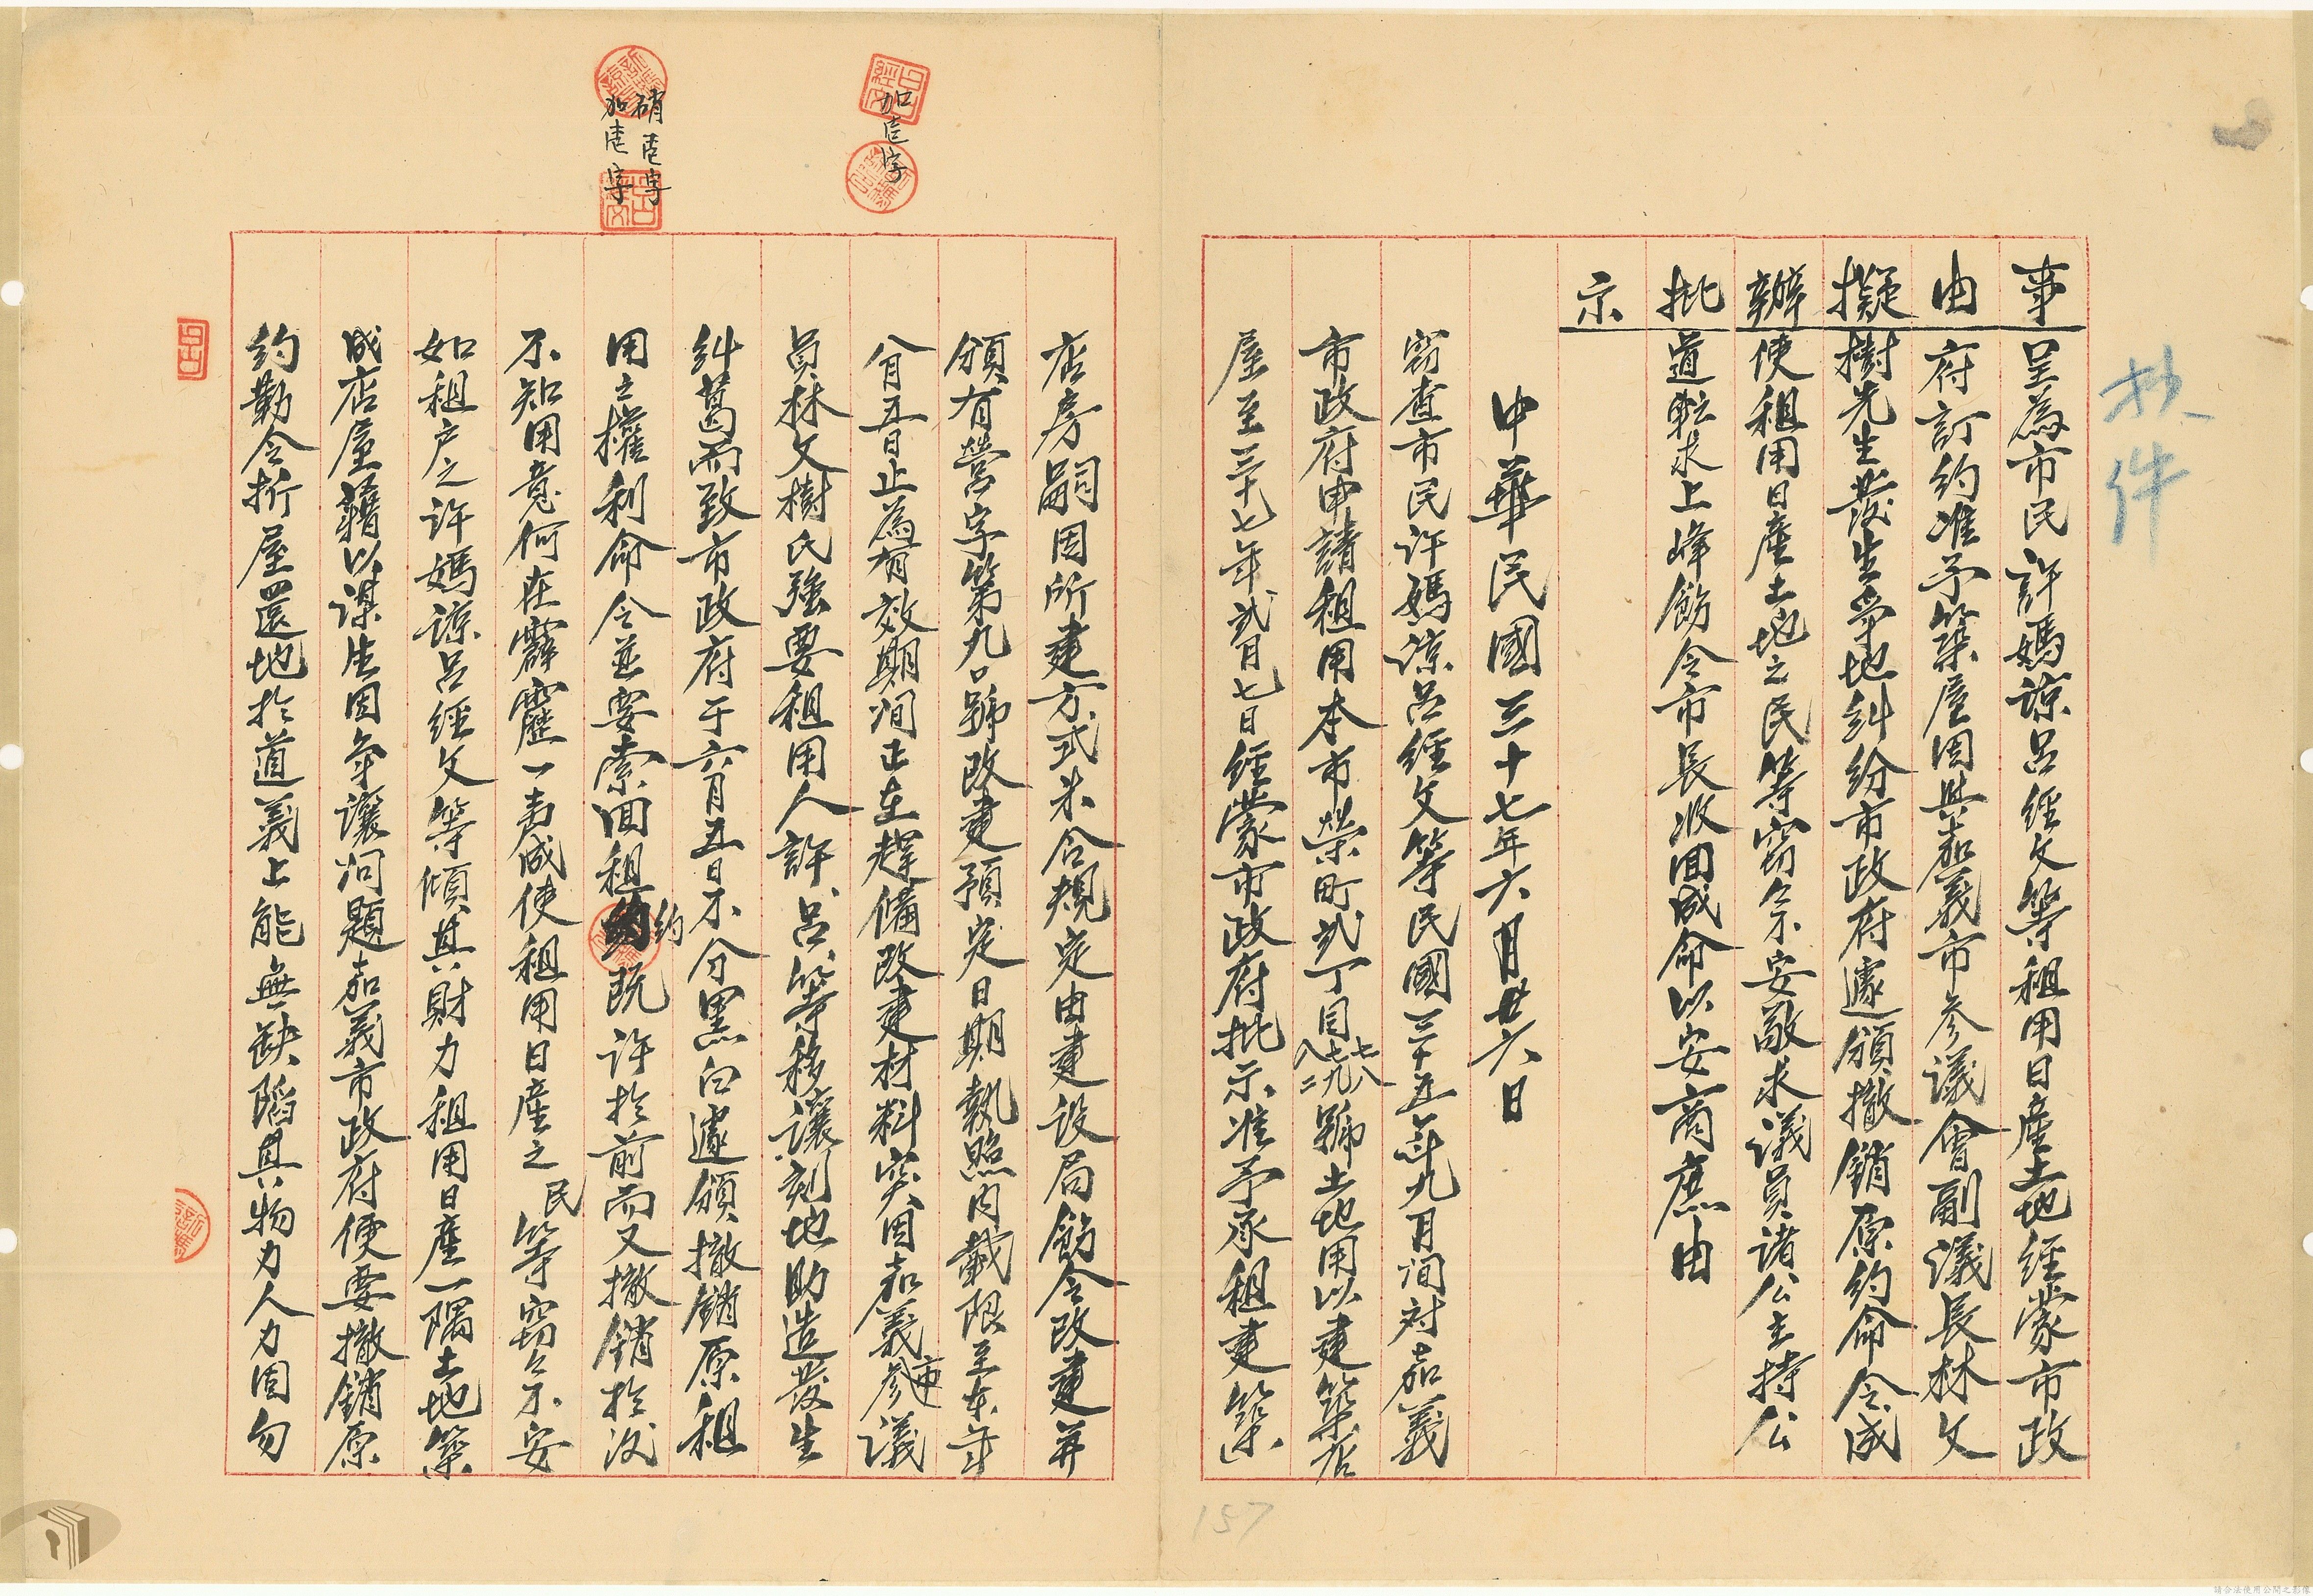 抄件
事 呈為市民許媽諒呂經文等租用日產土地經蒙市政
由 府訂約准予築屋因與嘉義市參議會副議長林文
擬 樹先生發生爭地糾紛市政府遽頒撤銷原約命令咸
辦 使租用日產土地之民等窃々不安敬求議員諸公主持公
批 道転求上峰飭令市長收回成命以安商庶由
示
中華民國三十七年六月廿六日
窃查市民許媽諒呂經文等民國三十五年九月間対嘉義
市政府申請租用本市榮町弍丁目七八七九八二號土地用以建築店
屋至三十七年弍月七日經蒙市政府批示准予承租建築
店房嗣因所建方式未合規定由建设局飭令改建并
頒有營字第九口號改建預定日期執照內載限至本年
八月五日止為有效期间正在趕備改建材料突因嘉義市參議
員林文樹氏強要租用人許、呂、等移讓刻地助造發生
糾葛而致市政府于六月五日不分黑白遽頒撤銷原租
用之權利命令並要索回租約既許於前而又撤銷於後
不知用意何在霹靂一声咸使租用日產之民等窃々不安
如租户之许媽諒呂經文等傾其財力租用日產一隅土地築
成店屋藉以謀生因爭讓问題嘉義市政府便要撤銷原
約勒令折屋還地於道義上能無缺陷其物力人力固勿
加壹字
硝壹字
加壹字
157